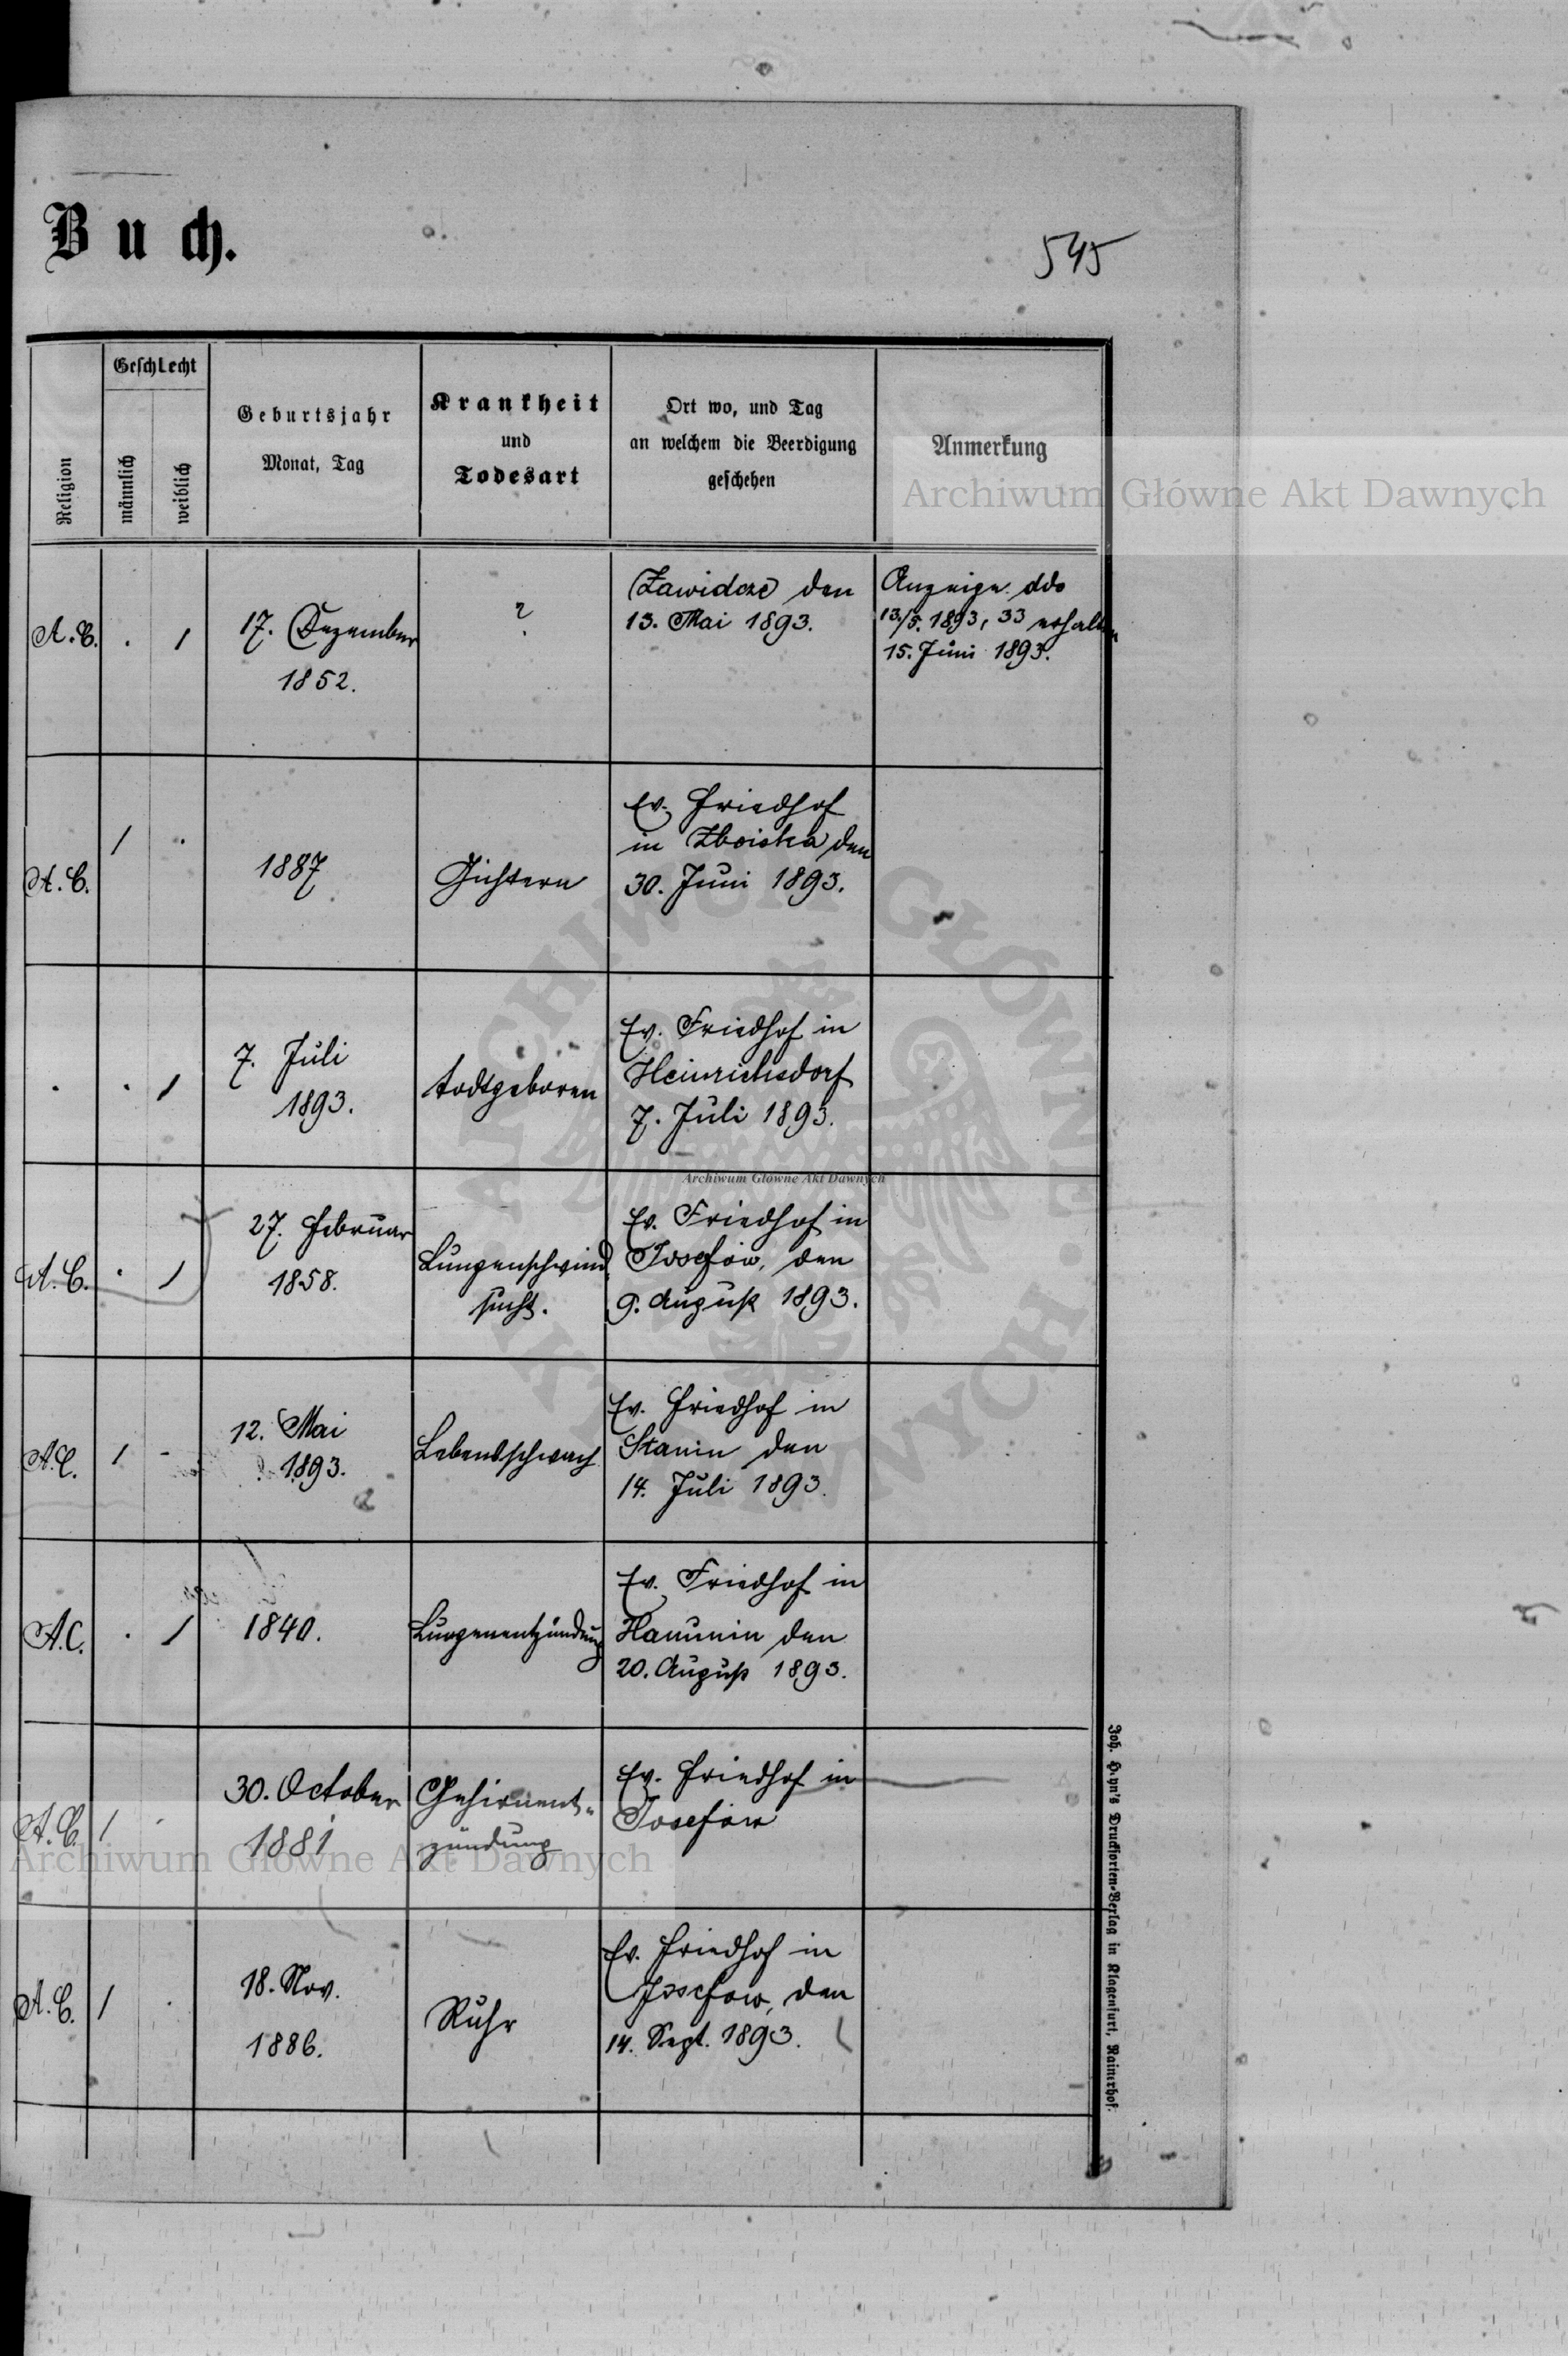 Buch.
545
Religion
Geschlecht
männlich
weiblich
Geburtsjahr
Monat, Tag
Krankheit
und
Todesart
Ort wo, und Tag
an welchem die Beerdigung
geschehen
Anmerkung
Archiwum Główne Akt Dawnych
A.C. . 1
17. Dezember
1852.
?
Zawidcze den
13. Mai 1893.
Anzeige ddo
13/5. 1893, 33 erhalten
15. Juni 1893.
A.C. 1 .
1887
Gichtern
Ev. Friedhof
in Zboiska den
30. Juni 1893.
. . 1
7. Juli
1893.
todtgeboren
Ev. Friedhof in
Heinrichsdorf
7. Juli 1893.
Archiwum Główne Akt Dawnych
A.C. . 1
27. Februar
1858.
Lungenschwind
sucht.
Ev. Friedhof in
Josefów, den
9. August 1893.
A.C. 1 -
12. Mai
1893.
Lebensschwach
Ev. Friedhof in
Stanin den
14. Juli 1893.
A.C. . 1
1840.
Lungenentzündung
Ev. Friedhof in
Hanunin den
20. August 1893.
A.C. 1 .
30. October
1881
Gehirnent-
zündung
Ev. Friedhof in
Josefów
Archiwum Główne Akt Dawnych
A.C. 1 .
18. Nov.
1886.
Ruhr
Ev. Friedhof in
Josefow, den
14. Sept. 1893.
Druckorten-Verlag in Klagenfurt, Rainerhof.
ARCHIWUM GŁÓWNE AKT DAWNYCH